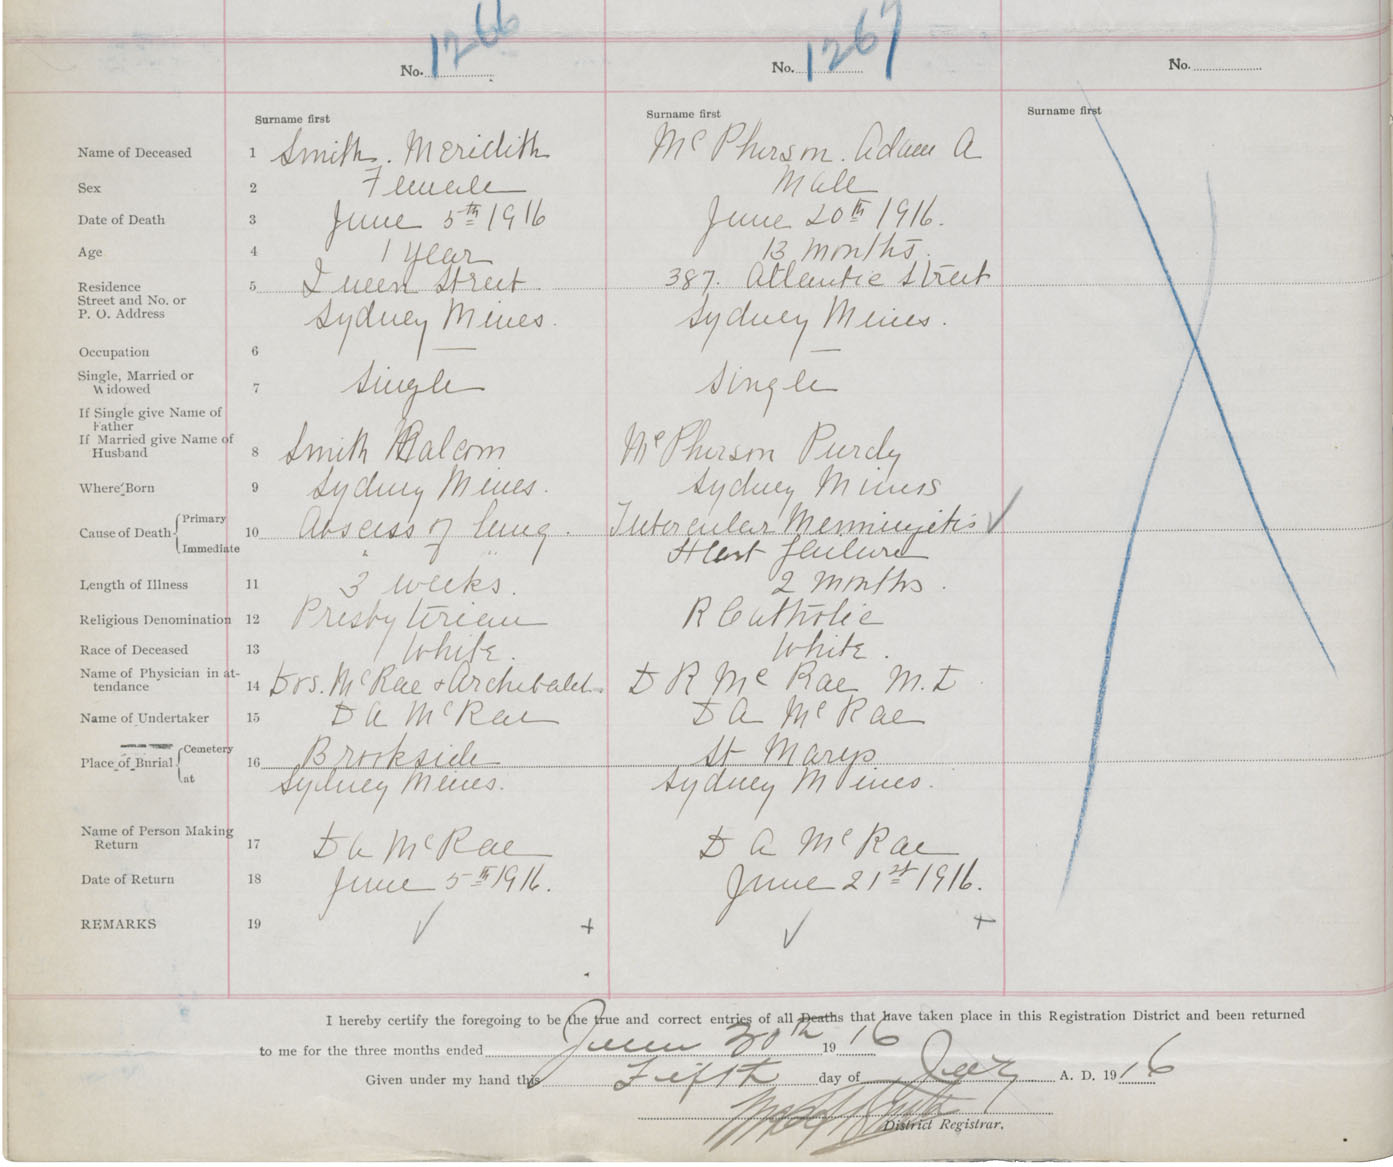 No. 1266 No. 1267 No.
Surname first Surname first Surname first
Name of Deceased 1 Smith. Meridith McPherson. Adam A
Sex 2 Female Male
Date of Death 3 June 5th 1916 June 20th 1916.
Age 4 1 Year 13 months.
Residence 5 Queen Street. 387. Atlantic Street
Street and No. or
P. O. Address Sydney Mines. Sydney Mines.
Occupation 6 — —
Single, Married or
Widowed 7 Single Single
If Single give Name of
Father
If Married give Name of
Husband 8 Smith Malcom McPherson Purdy
Where Born 9 Sydney Mines. Sydney Mines
Cause of Death { Primary 10 Abscess of lung. Tubercular Menningitis ✓
Immediate " " Heart failure
Length of Illness 11 3 weeks. 2 months.
Religious Denomination 12 Presbyterian R Catholic
Race of Deceased 13 White. White.
Name of Physician in at-
tendance 14 Drs. McRae + Archibald. D R McRae M.D.
Name of Undertaker 15 D A McRae D A McRae
Place of Burial { Cemetery 16 Brookside St Marys
at Sydney Mines. Sydney Mines.
Name of Person Making
Return 17 D A McRae D A McRae
Date of Return 18 June 5th 1916. June 21st 1916.
REMARKS 19 ✓ + ✓ +
I hereby certify the foregoing to be the true and correct entries of all Deaths that have taken place in this Registration District and been returned
to me for the three months ended June 30th 1916
Given under my hand this Fifth day of July A. D. 1916
District Registrar.